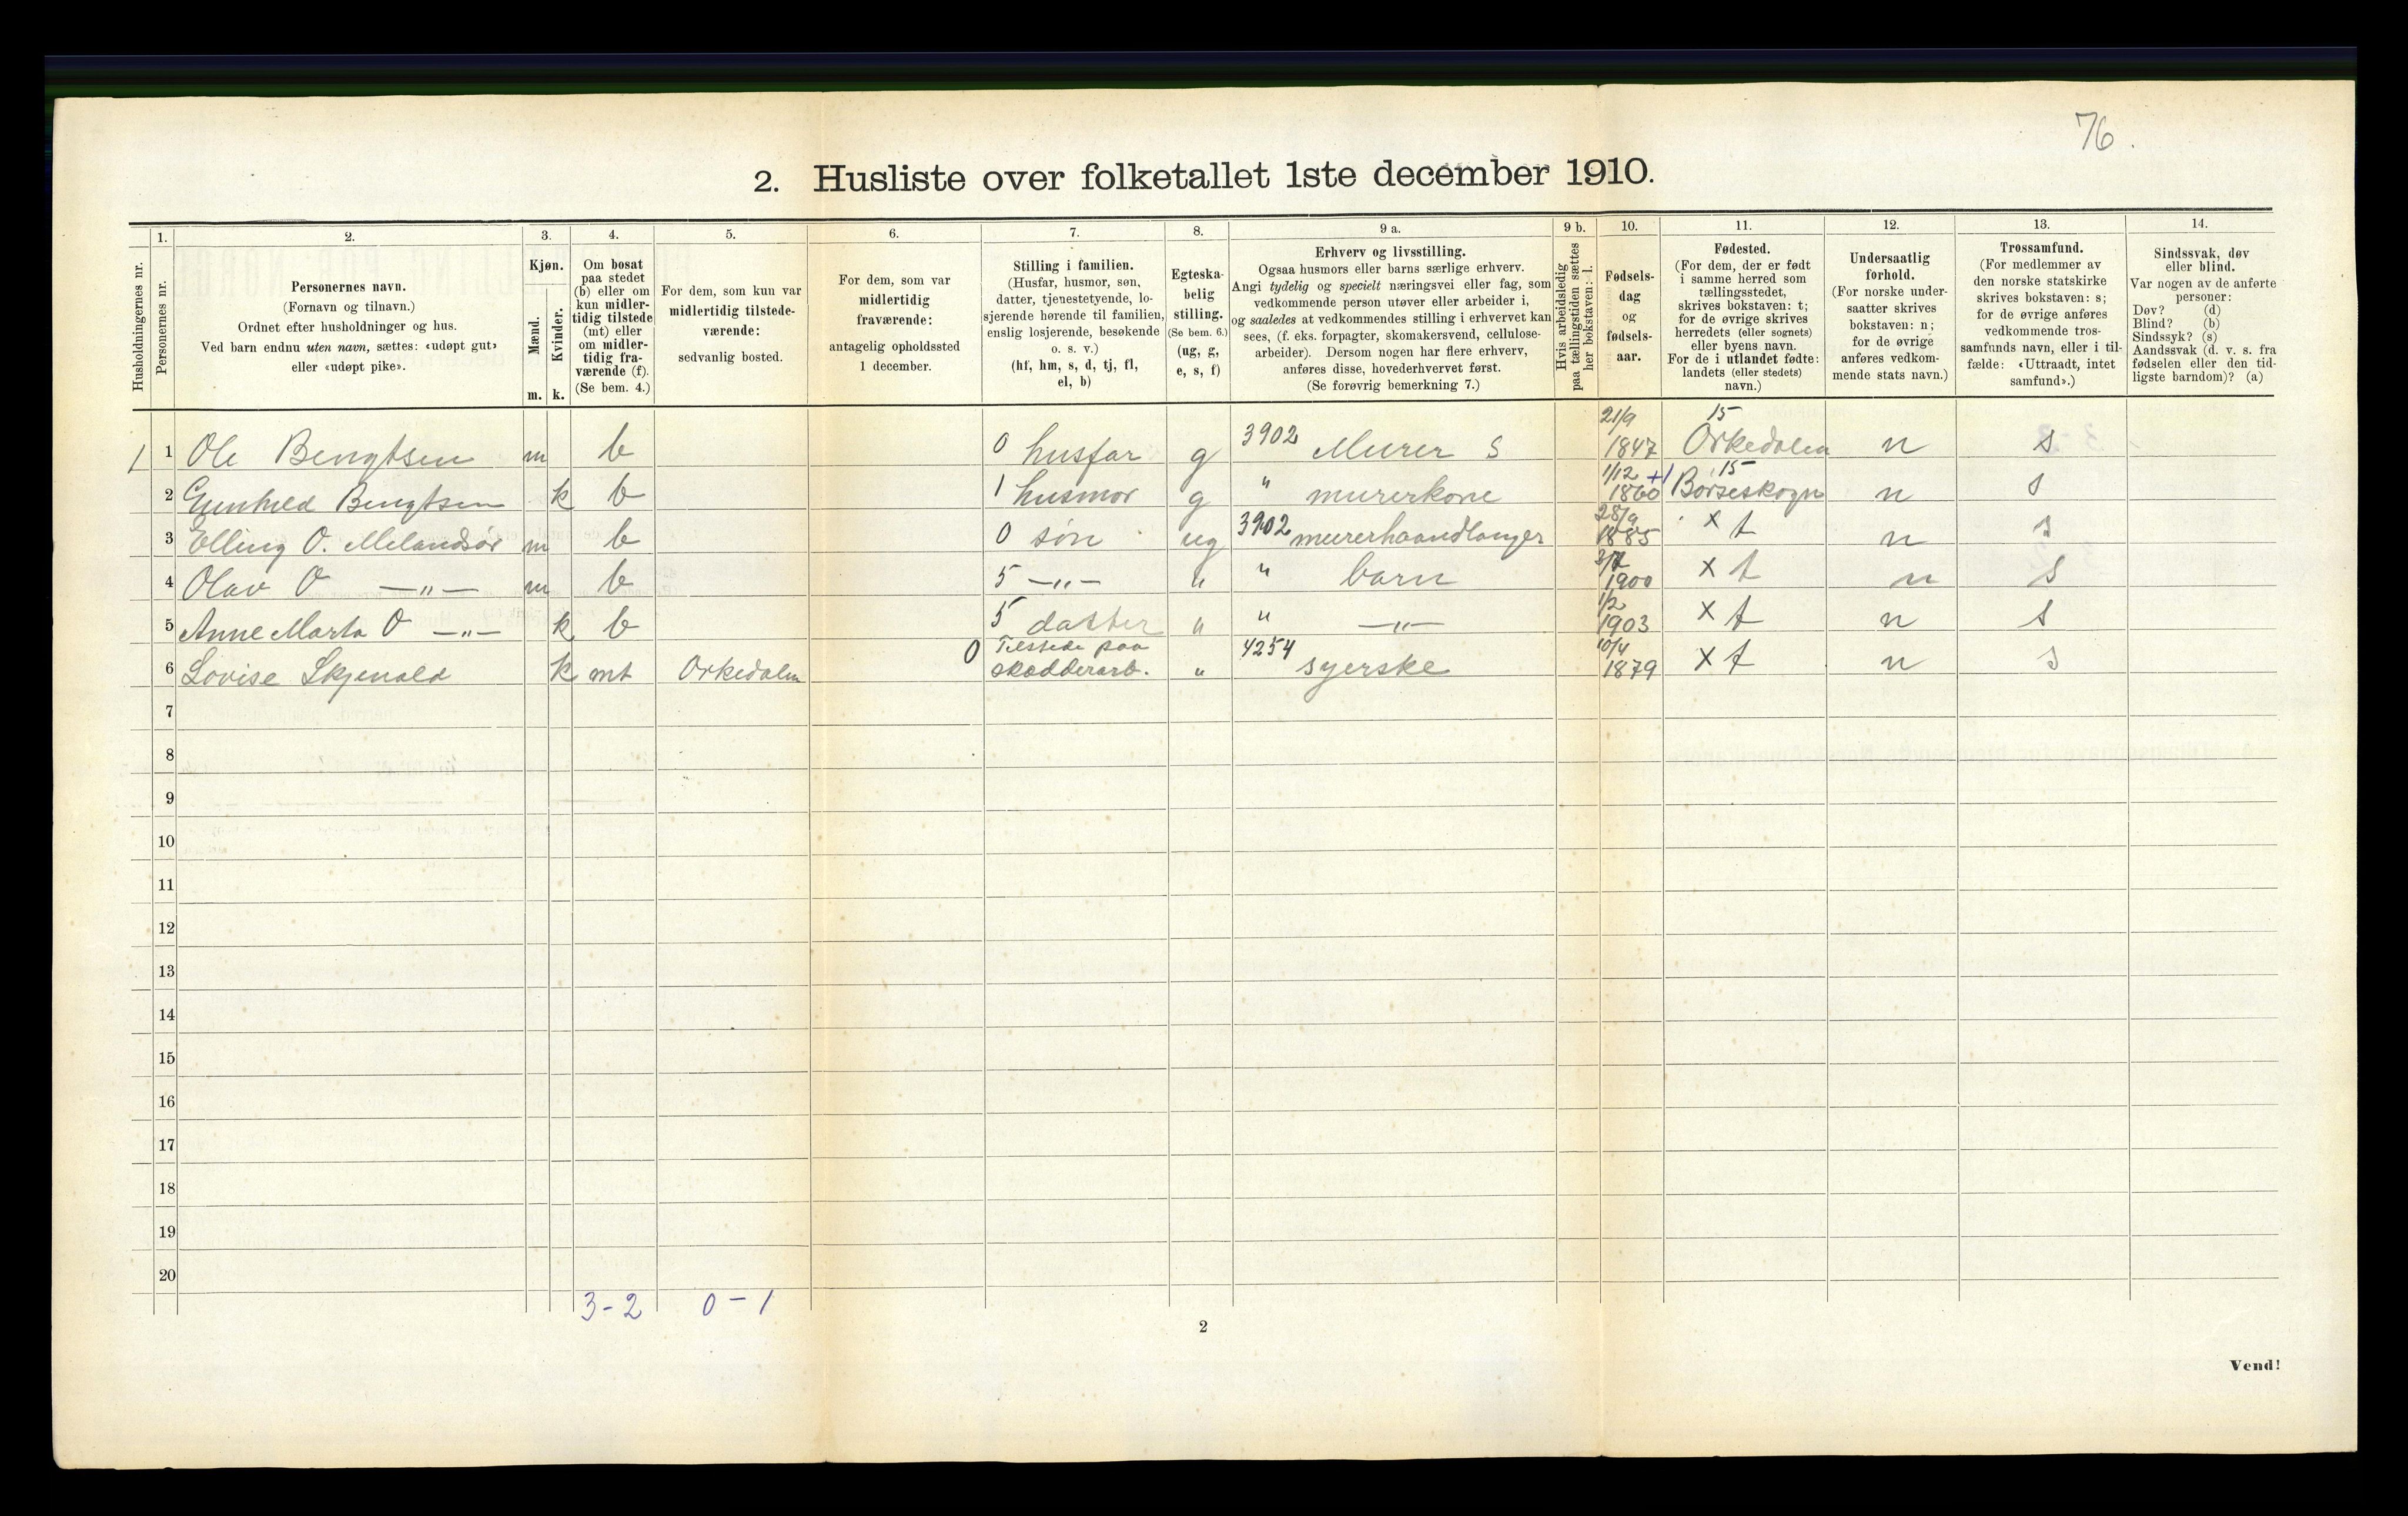 76.
2. Husliste over folketallet 1ste december 1910.
1. 2. 3. 4. 5. 6. 7. 8. 9 a. 9 b. 10. 11. 12. 13. 14.
Husholdningernes nr.
Personernes nr.
Personernes navn.
(Fornavn og tilnavn.)
Ordnet efter husholdninger og hus.
Ved barn endnu uten navn, sættes: «udøpt gut»
eller «udøpt pike».
Kjøn.
Mænd.
Kvinder.
m. k.
Om bosat
paa stedet
(b) eller om
kun midler-
tidig tilstede
(mt) eller
om midler-
tidig fra-
værende (f).
(Se bem. 4.)
For dem, som kun var
midlertidig tilstede-
værende:
sedvanlig bosted.
For dem, som var
midlertidig
fraværende:
antagelig opholdssted
1 december.
Stilling i familien.
(Husfar, husmor, søn,
datter, tjenestetyende, lo-
sjerende hørende til familien,
enslig losjerende, besøkende
o. s. v.)
(hf, hm, s, d, tj, fl,
el, b)
Egteska-
belig
stilling.
(Se bem. 6.)
(ug, g,
e, s, f)
Erhverv og livsstilling.
Ogsaa husmors eller barns særlige erhverv.
Angi tydelig og specielt næringsvei eller fag, som
vedkommende person utøver eller arbeider i,
og saaledes at vedkommendes stilling i erhvervet kan
sees, (f. eks. forpagter, skomakersvend, cellulose-
arbeider). Dersom nogen har flere erhverv,
anføres disse, hovederhvervet først.
(Se forøvrig bemerkning 7.)
Hvis arbeidsledig
paa tællingstiden sættes
her bokstaven: l.
Fødsels-
dag
og
fødsels-
aar.
Fødested.
(For dem, der er født
i samme herred som
tællingsstedet,
skrives bokstaven: t;
for de øvrige skrives
herredets (eller sognets)
eller byens navn.
For de i utlandet fødte:
landets (eller stedets)
navn.)
Undersaatlig
forhold.
(For norske under-
saatter skrives
bokstaven: n;
for de øvrige
anføres vedkom-
mende stats navn.)
Trossamfund.
(For medlemmer av
den norske statskirke
skrives bokstaven: s;
for de øvrige anføres
vedkommende tros-
samfunds navn, eller i til-
fælde: «Uttraadt, intet
samfund».)
Sindssvak, døv
eller blind.
Var nogen av de anførte
personer:
Døv? (d)
Blind? (b)
Sindssyk? (s)
Aandssvak (d. v. s. fra
fødselen eller den tid-
ligste barndom)? (a)
1 1 Ole Bengtsen m b 0 husfar g 3902 Murer S 21/9 1847 15 Orkedalen n s
2 Gunhild Bengtsen k b 1 husmor g " murerkone 1/12 +1 1860 15 Børseskogn n s
3 Elling O. Melandsør m b 0 søn ug 3902 murerhaandlanger 28/9 1885 x t n s
4 Olav O —"— m b 5 —"— " " barn 1900 x t n s
5 Anne Marta O —"— k b 5 datter " " —"— 1/2 1903 x t n s
6 Lovise Skjenald k mt Orkedalen 0 Tilstede paa skadderarb. " 4254 syerske 10/4 1879 x t n s
7
8
9
10
11
12
13
14
15
16
17
18
19
20
3-2 0-1
2
Vend!